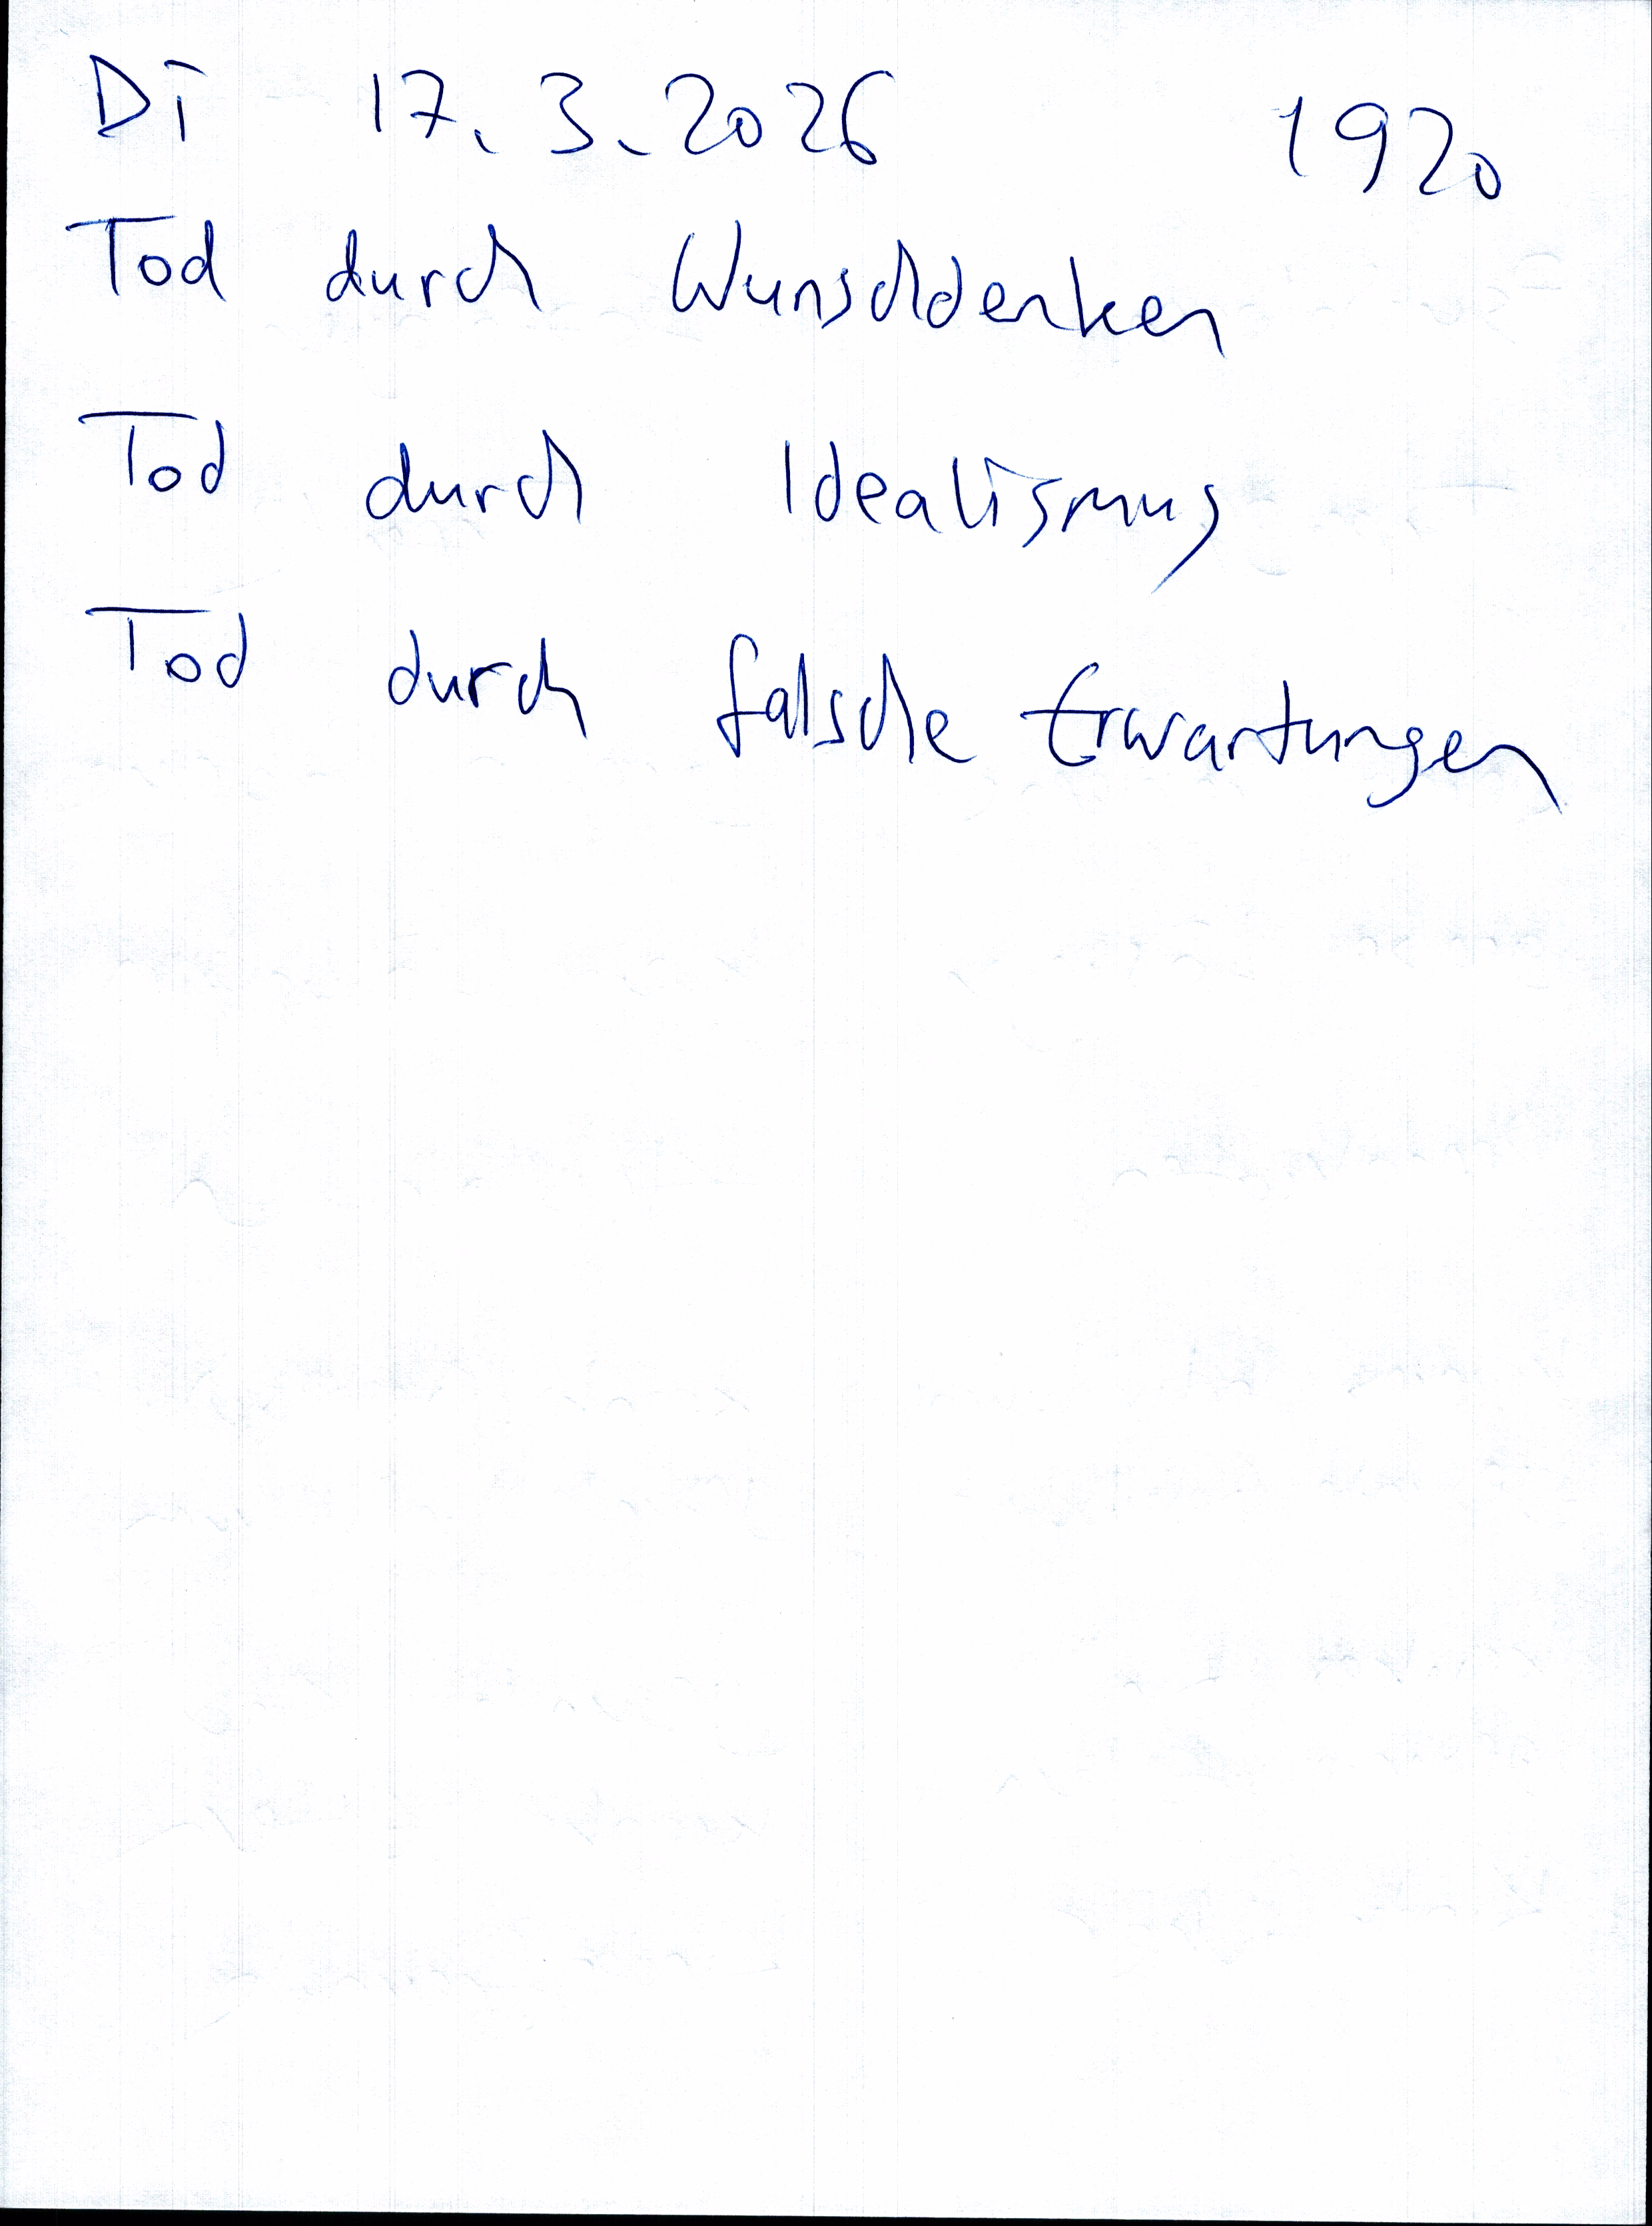 Di 17.3.2026 1920
Tod durch Wunschdenken
Tod durch Idealismus
Tod durch falsche Erwartungen